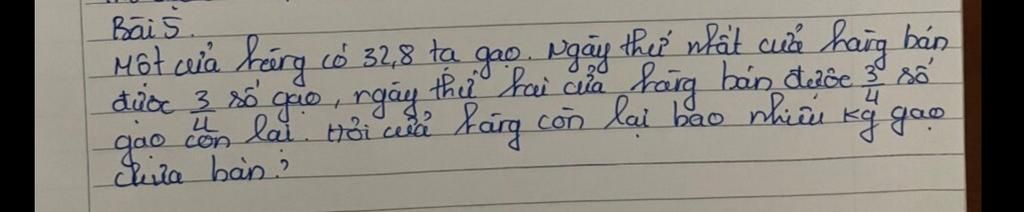 Bài 5.
Một cửa hàng có 32,8 tạ gạo. Ngày thứ nhất cửa hàng bán
được 3/4 số gạo, ngày thứ hai cửa hàng bán được 3/4 số
gạo còn lại. Hỏi cửa hàng còn lại bao nhiêu kg gạo
chưa bán?